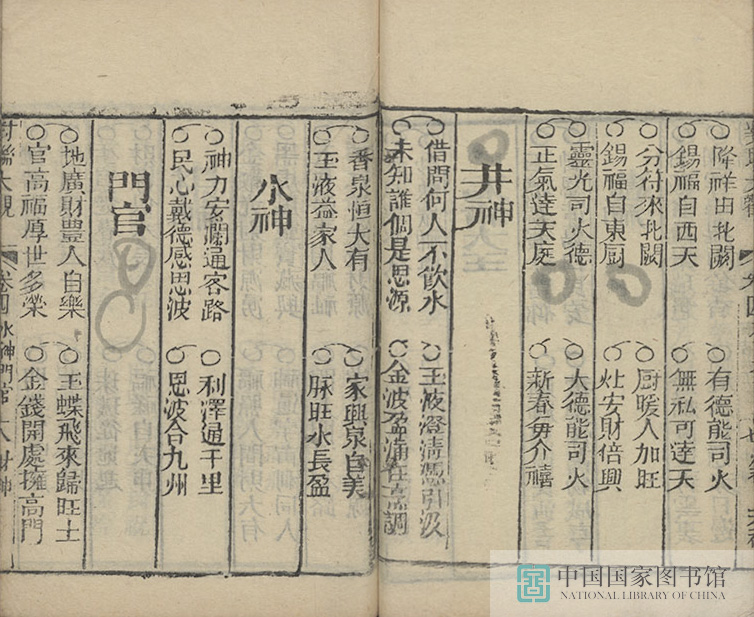 降祥由北闕 有德能司火
錫福自西天 無私可達天
分符來北闕 厨暖人加旺
錫福自東厨 灶安財倍興
靈光司火德 大德能司火
正氣達天庭 新春毋介禧
井神
借問何人不飲水 玉液澄清憑引汲
未知誰個是思源 金波盈涌在烹調
香泉恒大有 家興泉自美
玉液益家人 脉旺水長盈
水神
神力安瀾通客路 利澤通千里
民心戴德感恩波 恩波合九州
門官
地廣財豊人自樂 玉蝶飛來歸旺土
官高福厚世多榮 金錢開處擁高門
對聯大觀 卷四 水神門官 八 財神
中国国家图书馆
NATIONAL LIBRARY OF CHINA